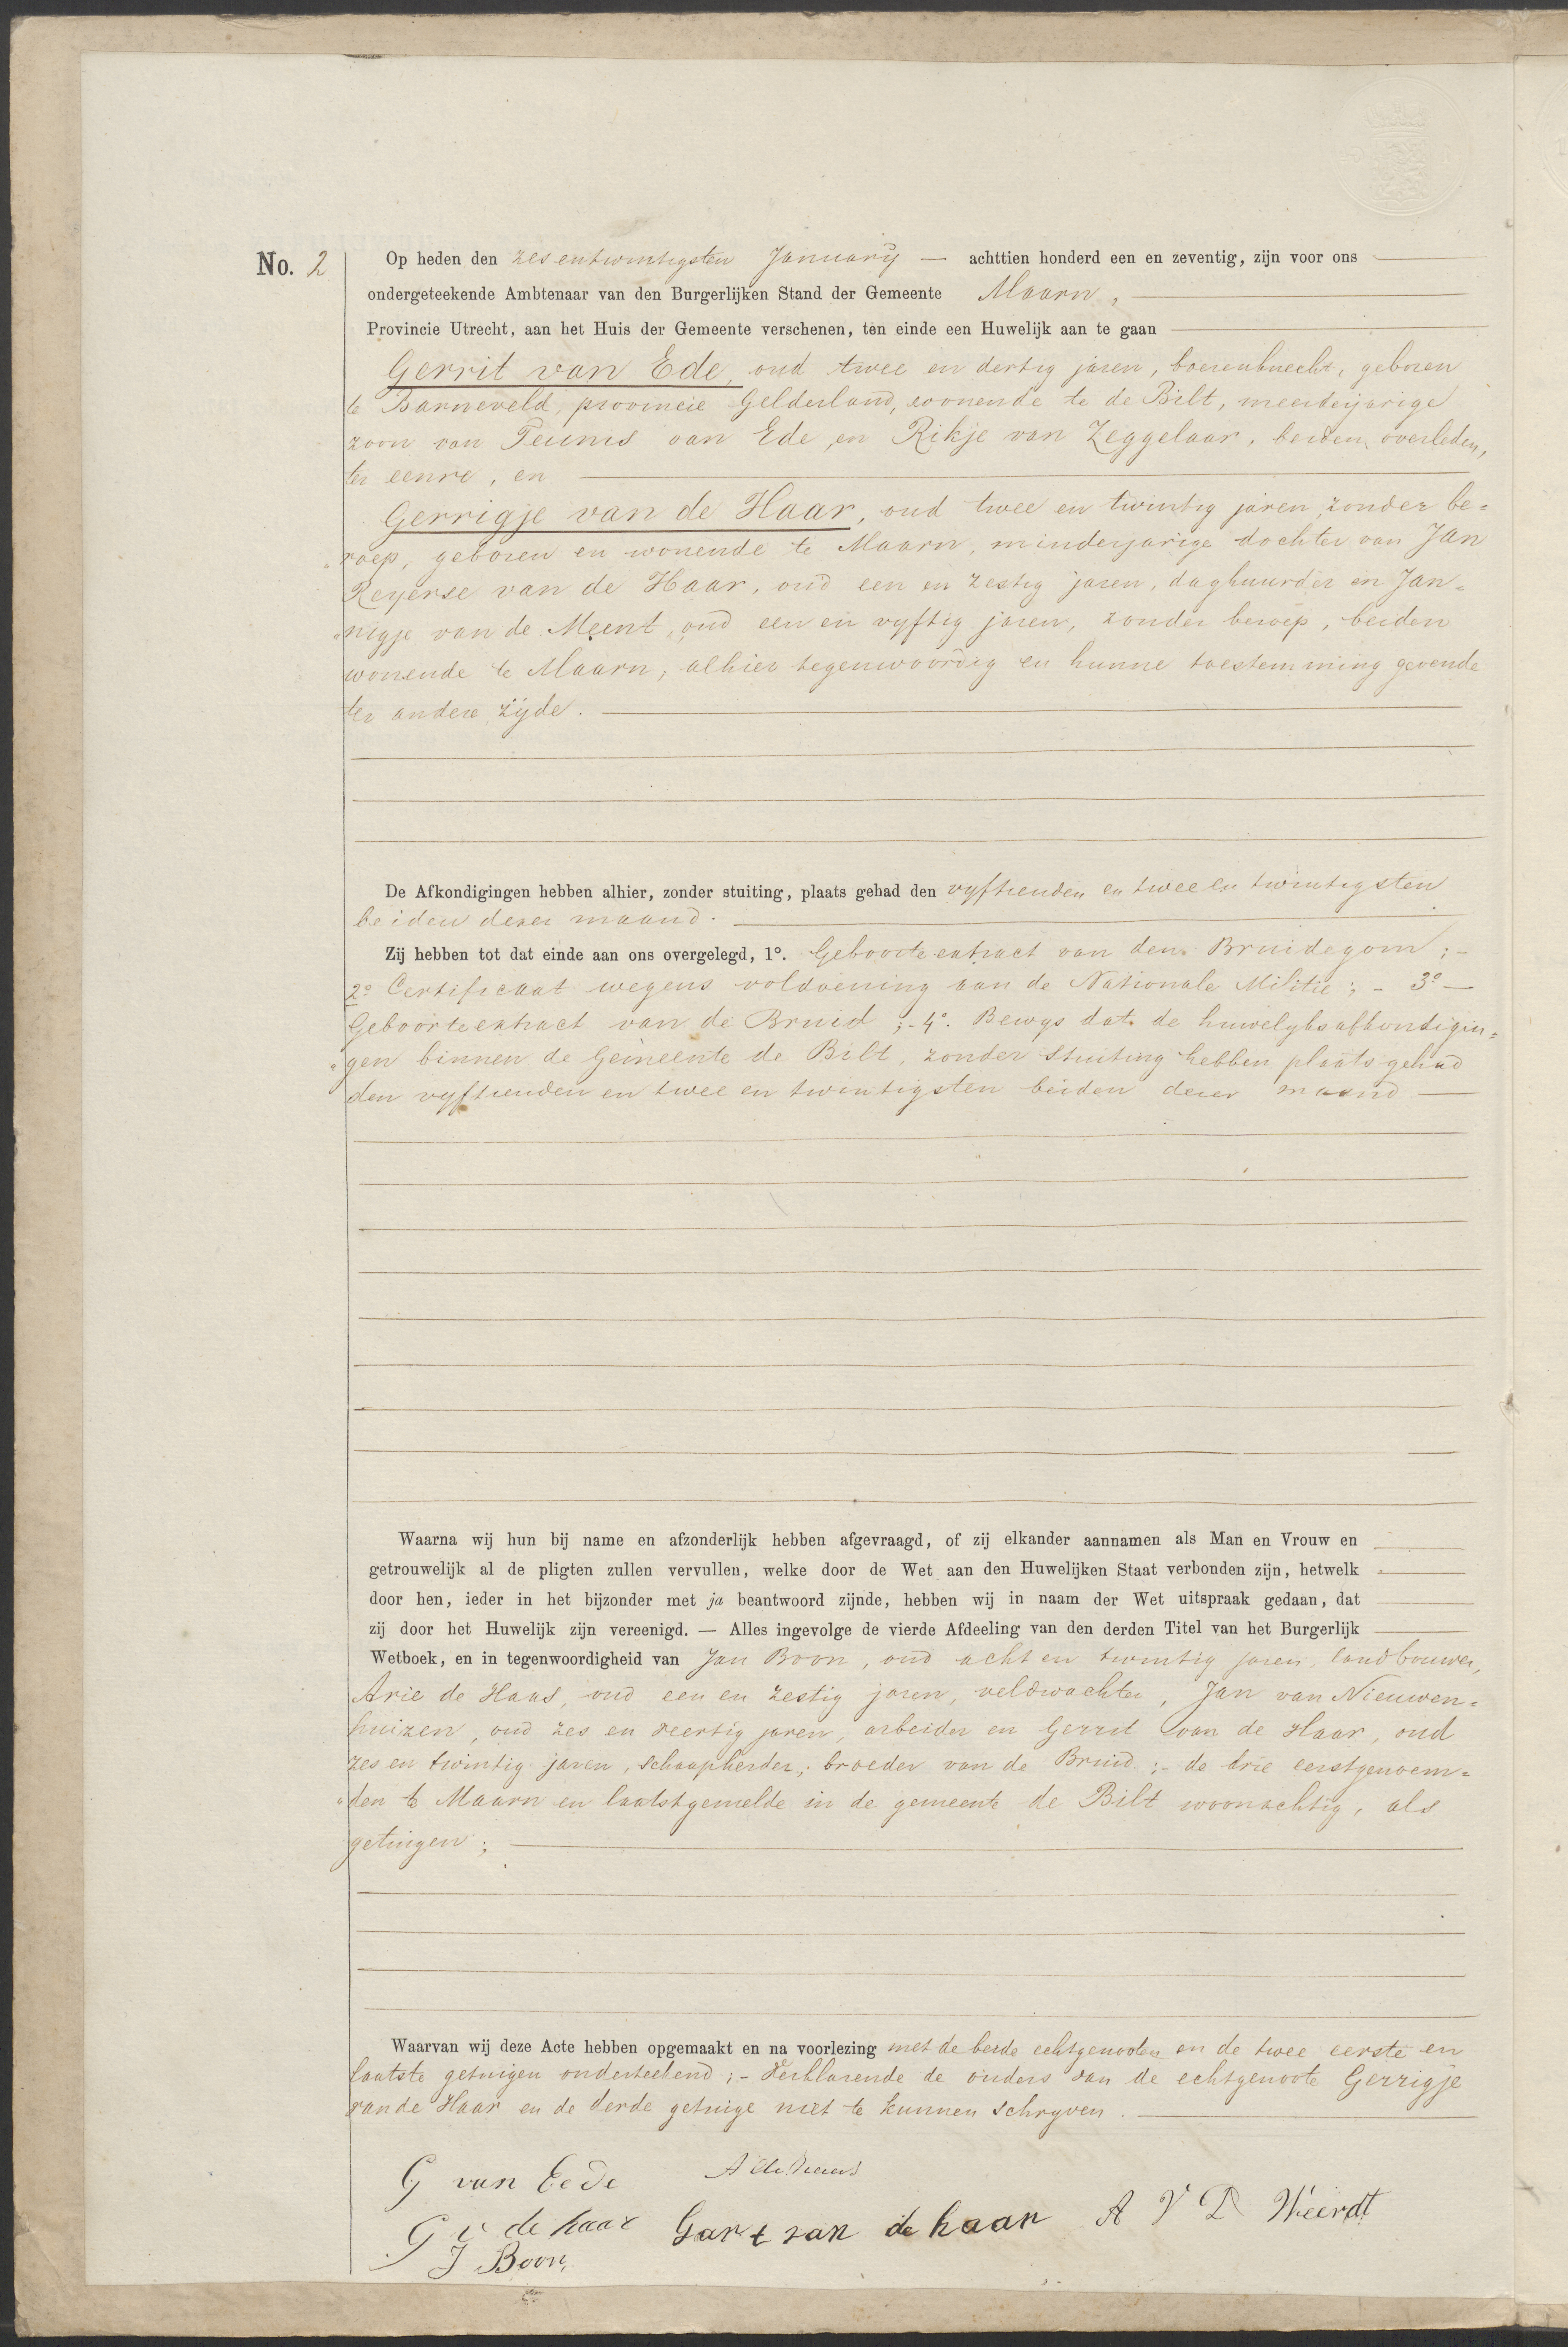 No. 2
Op heden den zesentwintigsten January — achttien honderd een en zeventig, zijn voor ons
ondergeteekende Ambtenaar van den Burgerlijken Stand der Gemeente Maarn,
Provincie Utrecht, aan het Huis der Gemeente verschenen, ten einde een Huwelijk aan te gaan
Gerrit van Ede, oud twee en dertig jaren, boerenknecht, geboren
te Barneveld, provincie Gelderland, wonende te de Bilt, meerderjarige
zoon van Teunis van Ede, en Rikje van Zeggelaar, beiden overleden,
ter eenre, en
Gerrigje van de Haar, oud twee en twintig jaren, zonder be=
"roep, geboren en wonende te Maarn, minderjarige dochter van Jan
Reyerse van de Haar, oud een en zestig jaren, daghuurder en Jan=
"nigje van de Meent, oud een en vyftig jaren, zonder beroep, beiden
wonende te Maarn, alhier tegenwoordig en hunne toestemming gevende
ter andere zijde.
De Afkondigingen hebben alhier, zonder stuiting, plaats gehad den vyftienden en twee en twintigsten
beiden dezer maand.
Zij hebben tot dat einde aan ons overgelegd, 1°. Geboorte extract van den Bruidegom; -
2° Certificaat wegens voldoening aan de Nationale Militie; - 3° —
Geboorteextract van de Bruid; - 4°. Bewys dat de huwelyksafkondigin=
"gen binnen de Gemeente de Bilt, zonder stuiting hebben plaats gehad
den vyftienden en twee en twintigsten beiden dezer maand —
Waarna wij hun bij name en afzonderlijk hebben afgevraagd, of zij elkander aannamen als Man en Vrouw en
getrouwelijk al de pligten zullen vervullen, welke door de Wet aan den Huwelijken Staat verbonden zijn, hetwelk
door hen, ieder in het bijzonder met ja beantwoord zijnde, hebben wij in naam der Wet uitspraak gedaan, dat
zij door het Huwelijk zijn vereenigd. — Alles ingevolge de vierde Afdeeling van den derden Titel van het Burgerlijk
Wetboek, en in tegenwoordigheid van Jan Boon, oud acht en twintig jaren, landbouwer,
Arie de Haas, oud een en zestig jaren, veldwachter, Jan van Nieuwen=
huizen, oud zes en veertig jaren, arbeider en Gerrit van de Haar, oud
zes en twintig jaren, schaapherder, broeder van de Bruid; - de drie eerstgenoem=
"den te Maarn en laatstgemelde in de gemeente de Bilt woonachtig, als
getuigen;
Waarvan wij deze Acte hebben opgemaakt en na voorlezing met de beide echtgenooten en de twee eerste en
laatste getuigen onderteekend; - Verklarende de ouders van de echtgenoote Gerrigje
van de Haar en de derde getuige niet te kunnen schryven.
G van Eede A de Haas
G v de haar Gart van de haar A V D Weerdt
J Boon